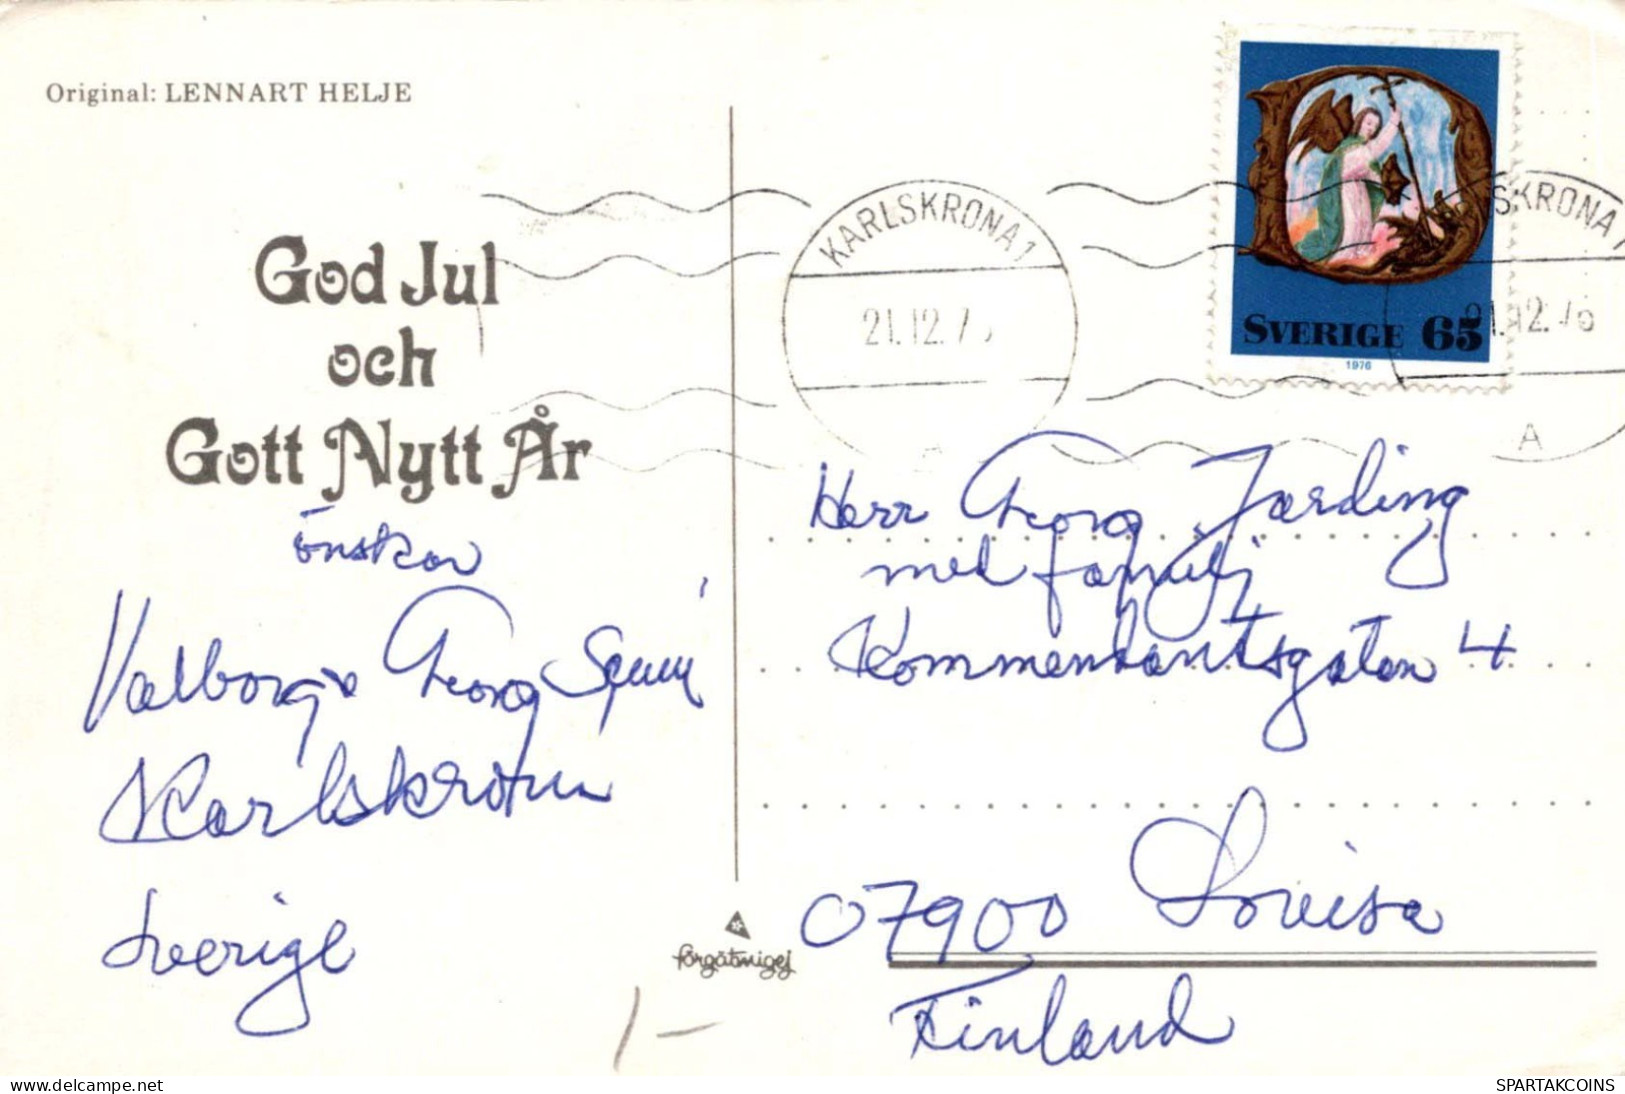 Original: LENNART HELJE
God Jul
och
Gott Nytt År
önskar
Valborg o Georg
Karlskrona
Sverige
förgätmigej
KARLSKRONA 1
21.12.7
SVERIGE 65
1976
SKRONA 1
21.12.76
A
Herr Georg Jærding
med familj
Kommendantsgatan 4
07900 Lovisa
Finland
1-
www.delcampe.net
SPARTAKCOINS